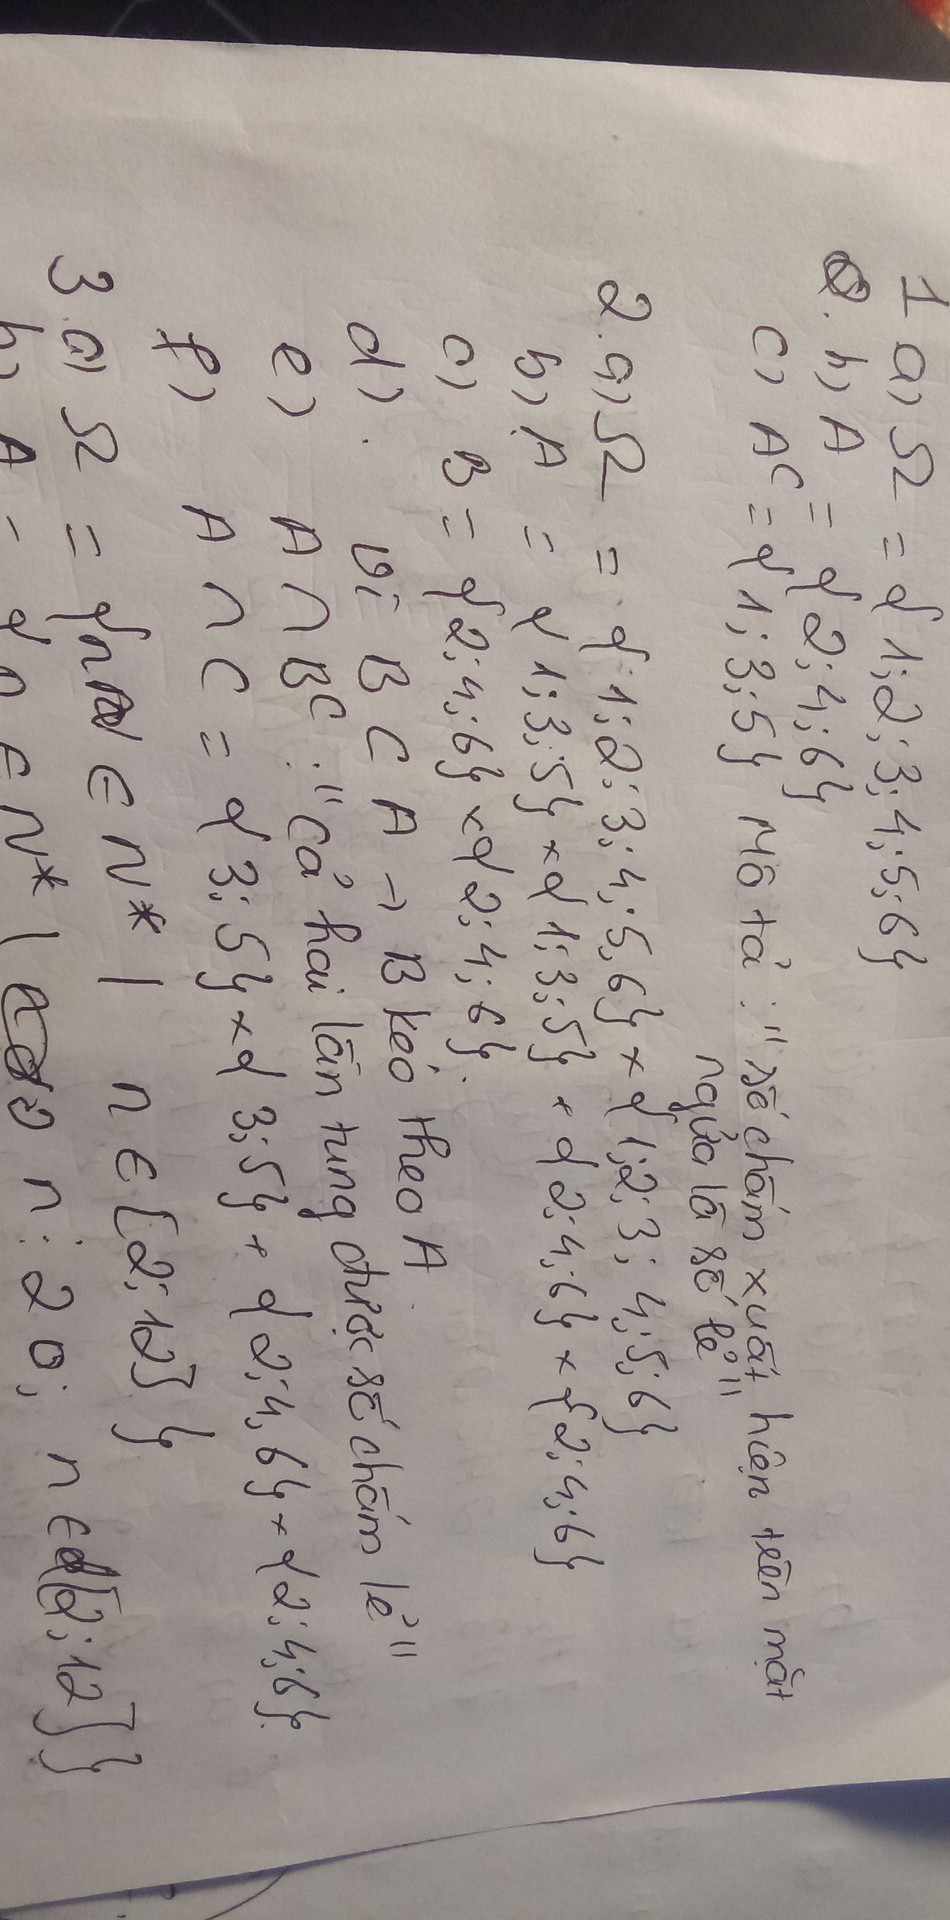 1 a) Ω = {1;2;3;4;5;6}
2. b) A = {2;4;6}
c) Aᶜ = {1;3;5} Mô tả : "số chấm xuất hiện trên mặt
ngửa là số lẻ"
2. a) Ω = {1;2;3;4;5,6} × {1;2;3; 4;5;6}
b) A = {1;3;5} × {1;3;5} + {2;4;6} × {2;4;6}
c) B = {2;4;6} × {2;4;6}.
d). Vì B ⊂ A → B kéo theo A.
e) A ∩ Bᶜ : "cả hai lần tung được số chấm lẻ"
f) A ∩ C = {3;5} × {3;5} + {2;4,6} × {2;4;6}.
3. a) Ω = {n ∈ N* | n ∈ [2;12] }
b) A = {n ∈ N* | n ⋮ 20; n ∈ [2;12] }